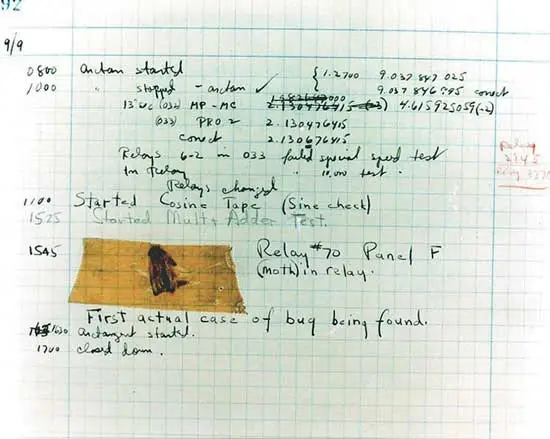 92
9/9
0800 antan started
1000 " stopped - antan ✓ { 1.2700 9.037 847 025
9.037 846 995 conect
13"uc (032) MP - MC 2.130476415 (-3) 4.615925059(-2)
(033) PRO 2 2.130476415
conect 2.130676415
Relays 6-2 in 033 failed special speed test
In Relay " 10,000 test .
Relays changed
Relay
3370
1100 Started Cosine Tape (Sine check)
1525 Started Mult+ Adder Test.
1545 Relay #70 Panel F
(moth) in relay.
First actual case of bug being found.
1630 antangent started.
1700 closed down.